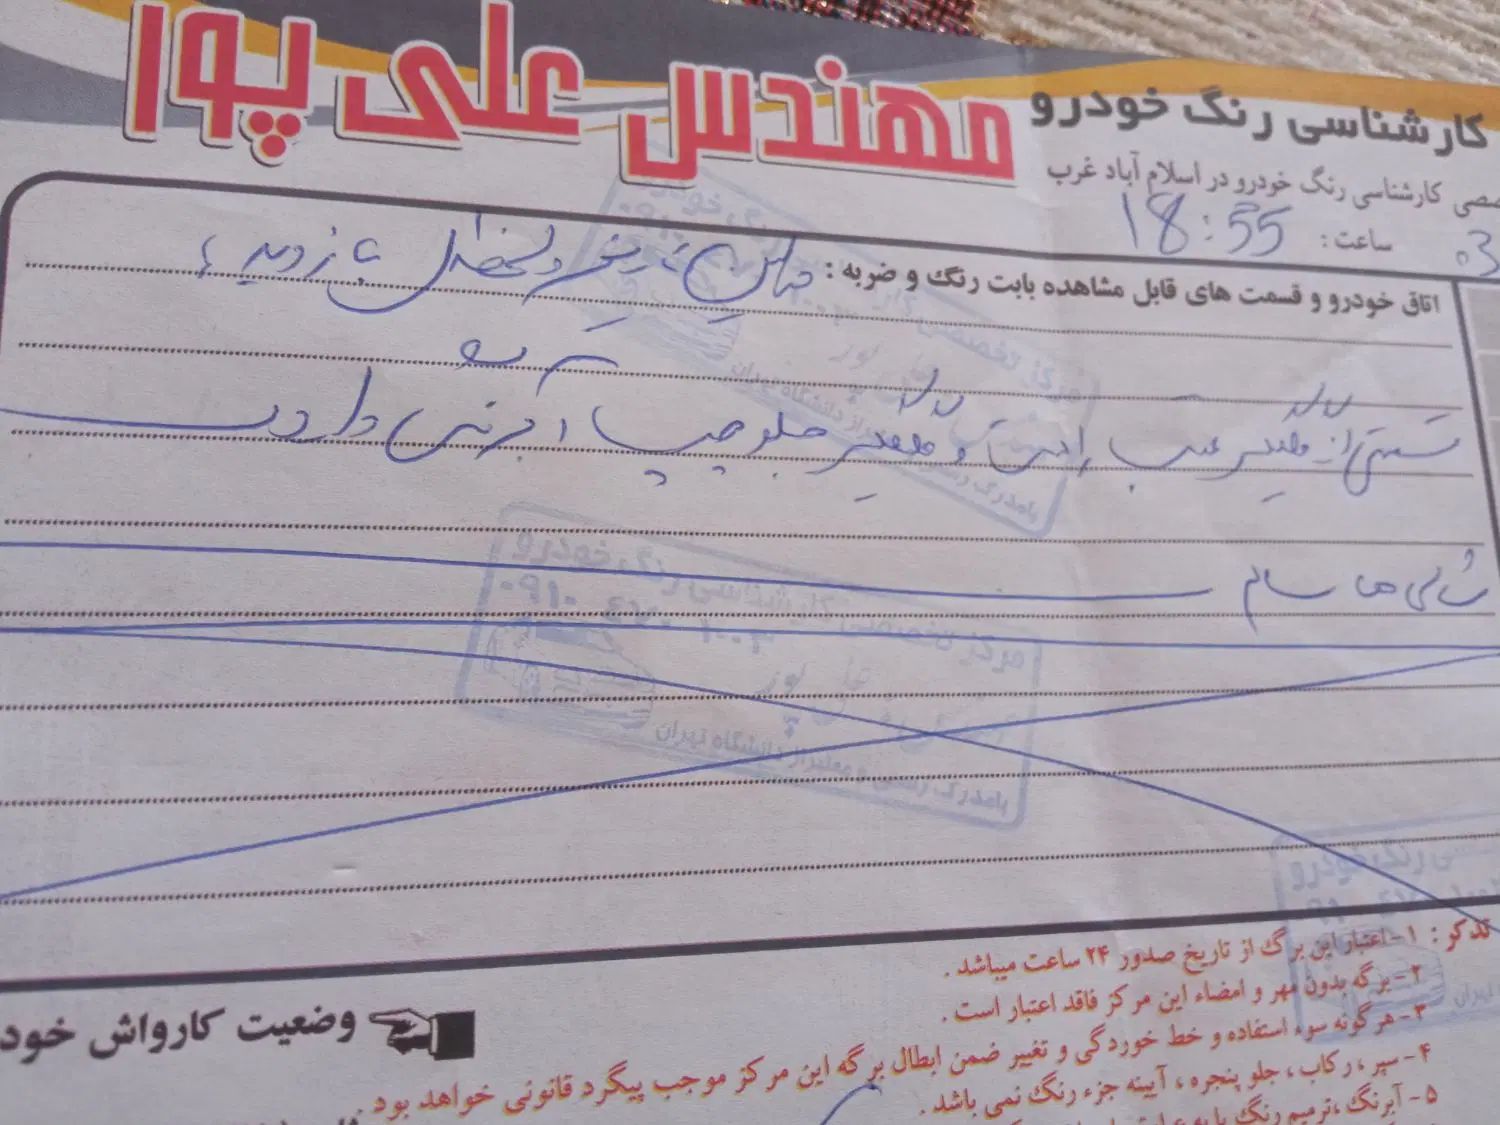 کارشناسی رنگ خودرو
مهندس علی پور
کارشناسی رنگ خودرو در اسلام آباد غرب
ساعت : 18:55
اتاق خودرو و قسمت های قابل مشاهده بابت رنگ و ضربه :
قسمتی از گلگیر عقب راست و گلگیر جلو چپ آبرنگ دارد
شاسی ها سالم
مرکز تخصصی کارشناسی رنگ خودرو
بامدرک رسمی و معتبر از دانشگاه تهران
تذکر : ۱- اعتبار این برگ از تاریخ صدور ۲۴ ساعت میباشد .
۲- برگه بدون مهر و امضاء این مرکز فاقد اعتبار است .
۳- هرگونه سوء استفاده و خط خوردگی و تغییر ضمن ابطال برگه این مرکز موجب پیگرد قانونی خواهد بود .
۴- سپر ، رکاب ، جلو پنجره ، آیینه جزء رنگ نمی باشد .
۵- آبرنگ ، ترمیم رنگ یا به
وضعیت کارواش خود